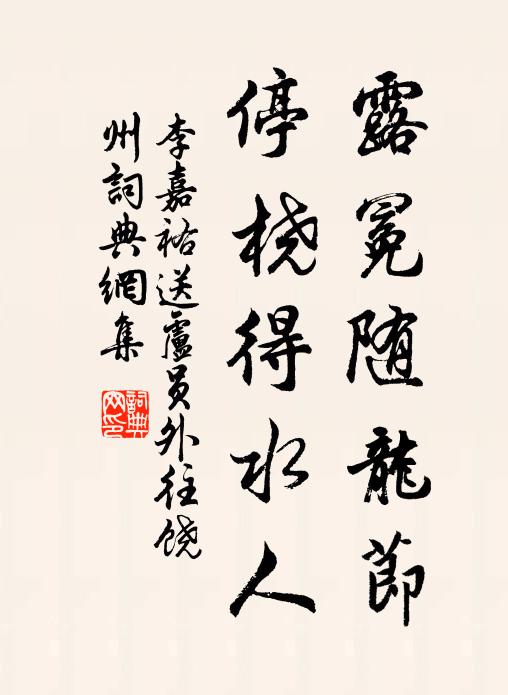 露冕随龍節
停橈得水人
李嘉祐送盧員外往饒
州詞典網集
詞典网印